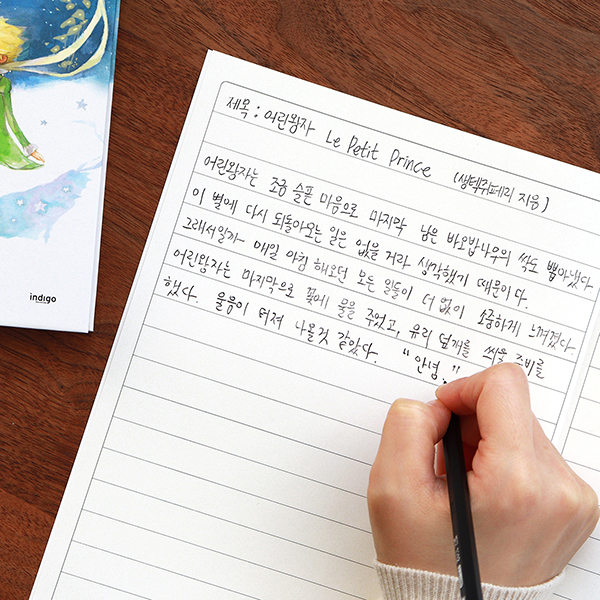 제목 : 어린왕자 Le Petit Prince (생텍쥐페리 지음)
어린왕자는 조금 슬픈 마음으로 마지막 남은 바오밥나무의 싹도 뽑아냈다
이 별에 다시 되돌아오는 일은 없을 거라 생각했기 때문이다.
그래서일까~ 매일 아침 해오던 모든 일들이 더 없이 소중하게 느껴졌다.
어린왕자는 마지막으로 꽃에 물을 주었고, 유리 덮개를 씌울 준비를
했다. 울음이 터져 나올것 같았다. "안녕."
indigo